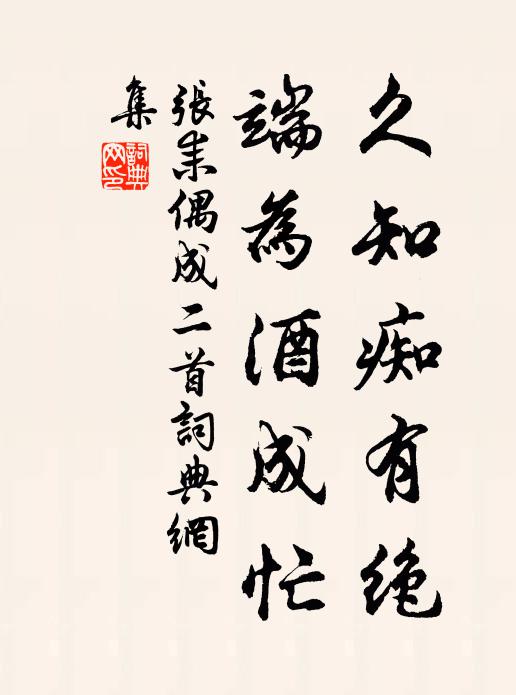 久知痴有绝
端為酒成忙
張耒偶成二首詞典網
集
詞典
网印